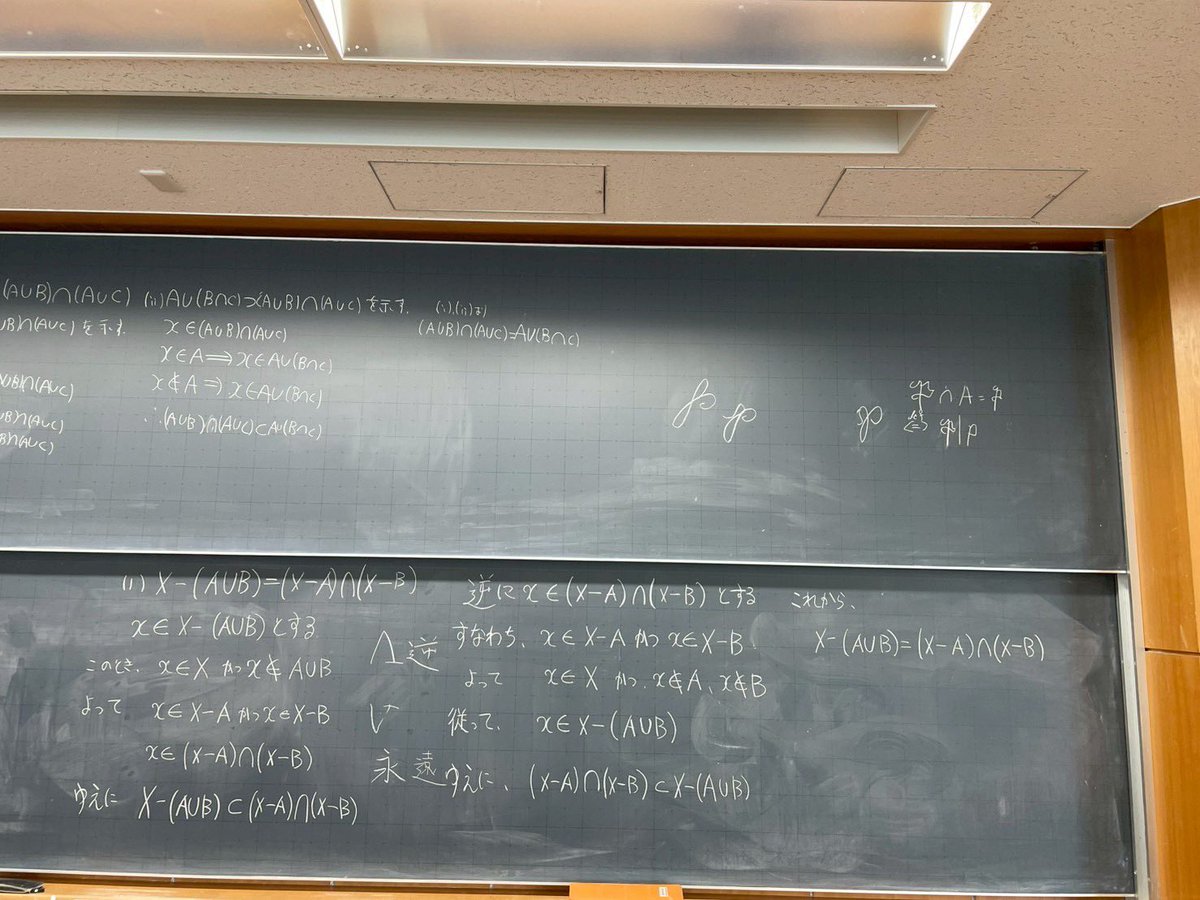 (A∪B)∩(A∪C)
∪B)∩(A∪C)を示す.
∪B)∩(A∪C)
∪B)∩(A∪C)
∪B)∩(A∪C)
(ii) A∪(B∩C)⊃(A∪B)∩(A∪C)を示す.
x∈(A∪B)∩(A∪C)
x∈A⟹x∈A∪(B∩C)
x∉A⟹x∈A∪(B∩C)
∴(A∪B)∩(A∪C)⊂A∪(B∩C)
(i),(ii)より
(A∪B)∩(A∪C)=A∪(B∩C)
℘ ℘
℘
𝔓∩A=𝔭
𝔓|p
(1) X-(A∪B)=(X-A)∩(X-B)
x∈X-(A∪B)とする
このとき、x∈Xかつx∉A∪B
よって x∈X-Aかつx∈X-B
x∈(X-A)∩(X-B)
ゆえに X-(A∪B)⊂(X-A)∩(X-B)
逆
永遠
逆にx∈(X-A)∩(X-B)とする
すなわち、x∈X-Aかつx∈X-B
よって x∈Xかつ、x∉A、x∉B
従って、x∈X-(A∪B)
ゆえに、(X-A)∩(X-B)⊂X-(A∪B)
これから、
X-(A∪B)=(X-A)∩(X-B)